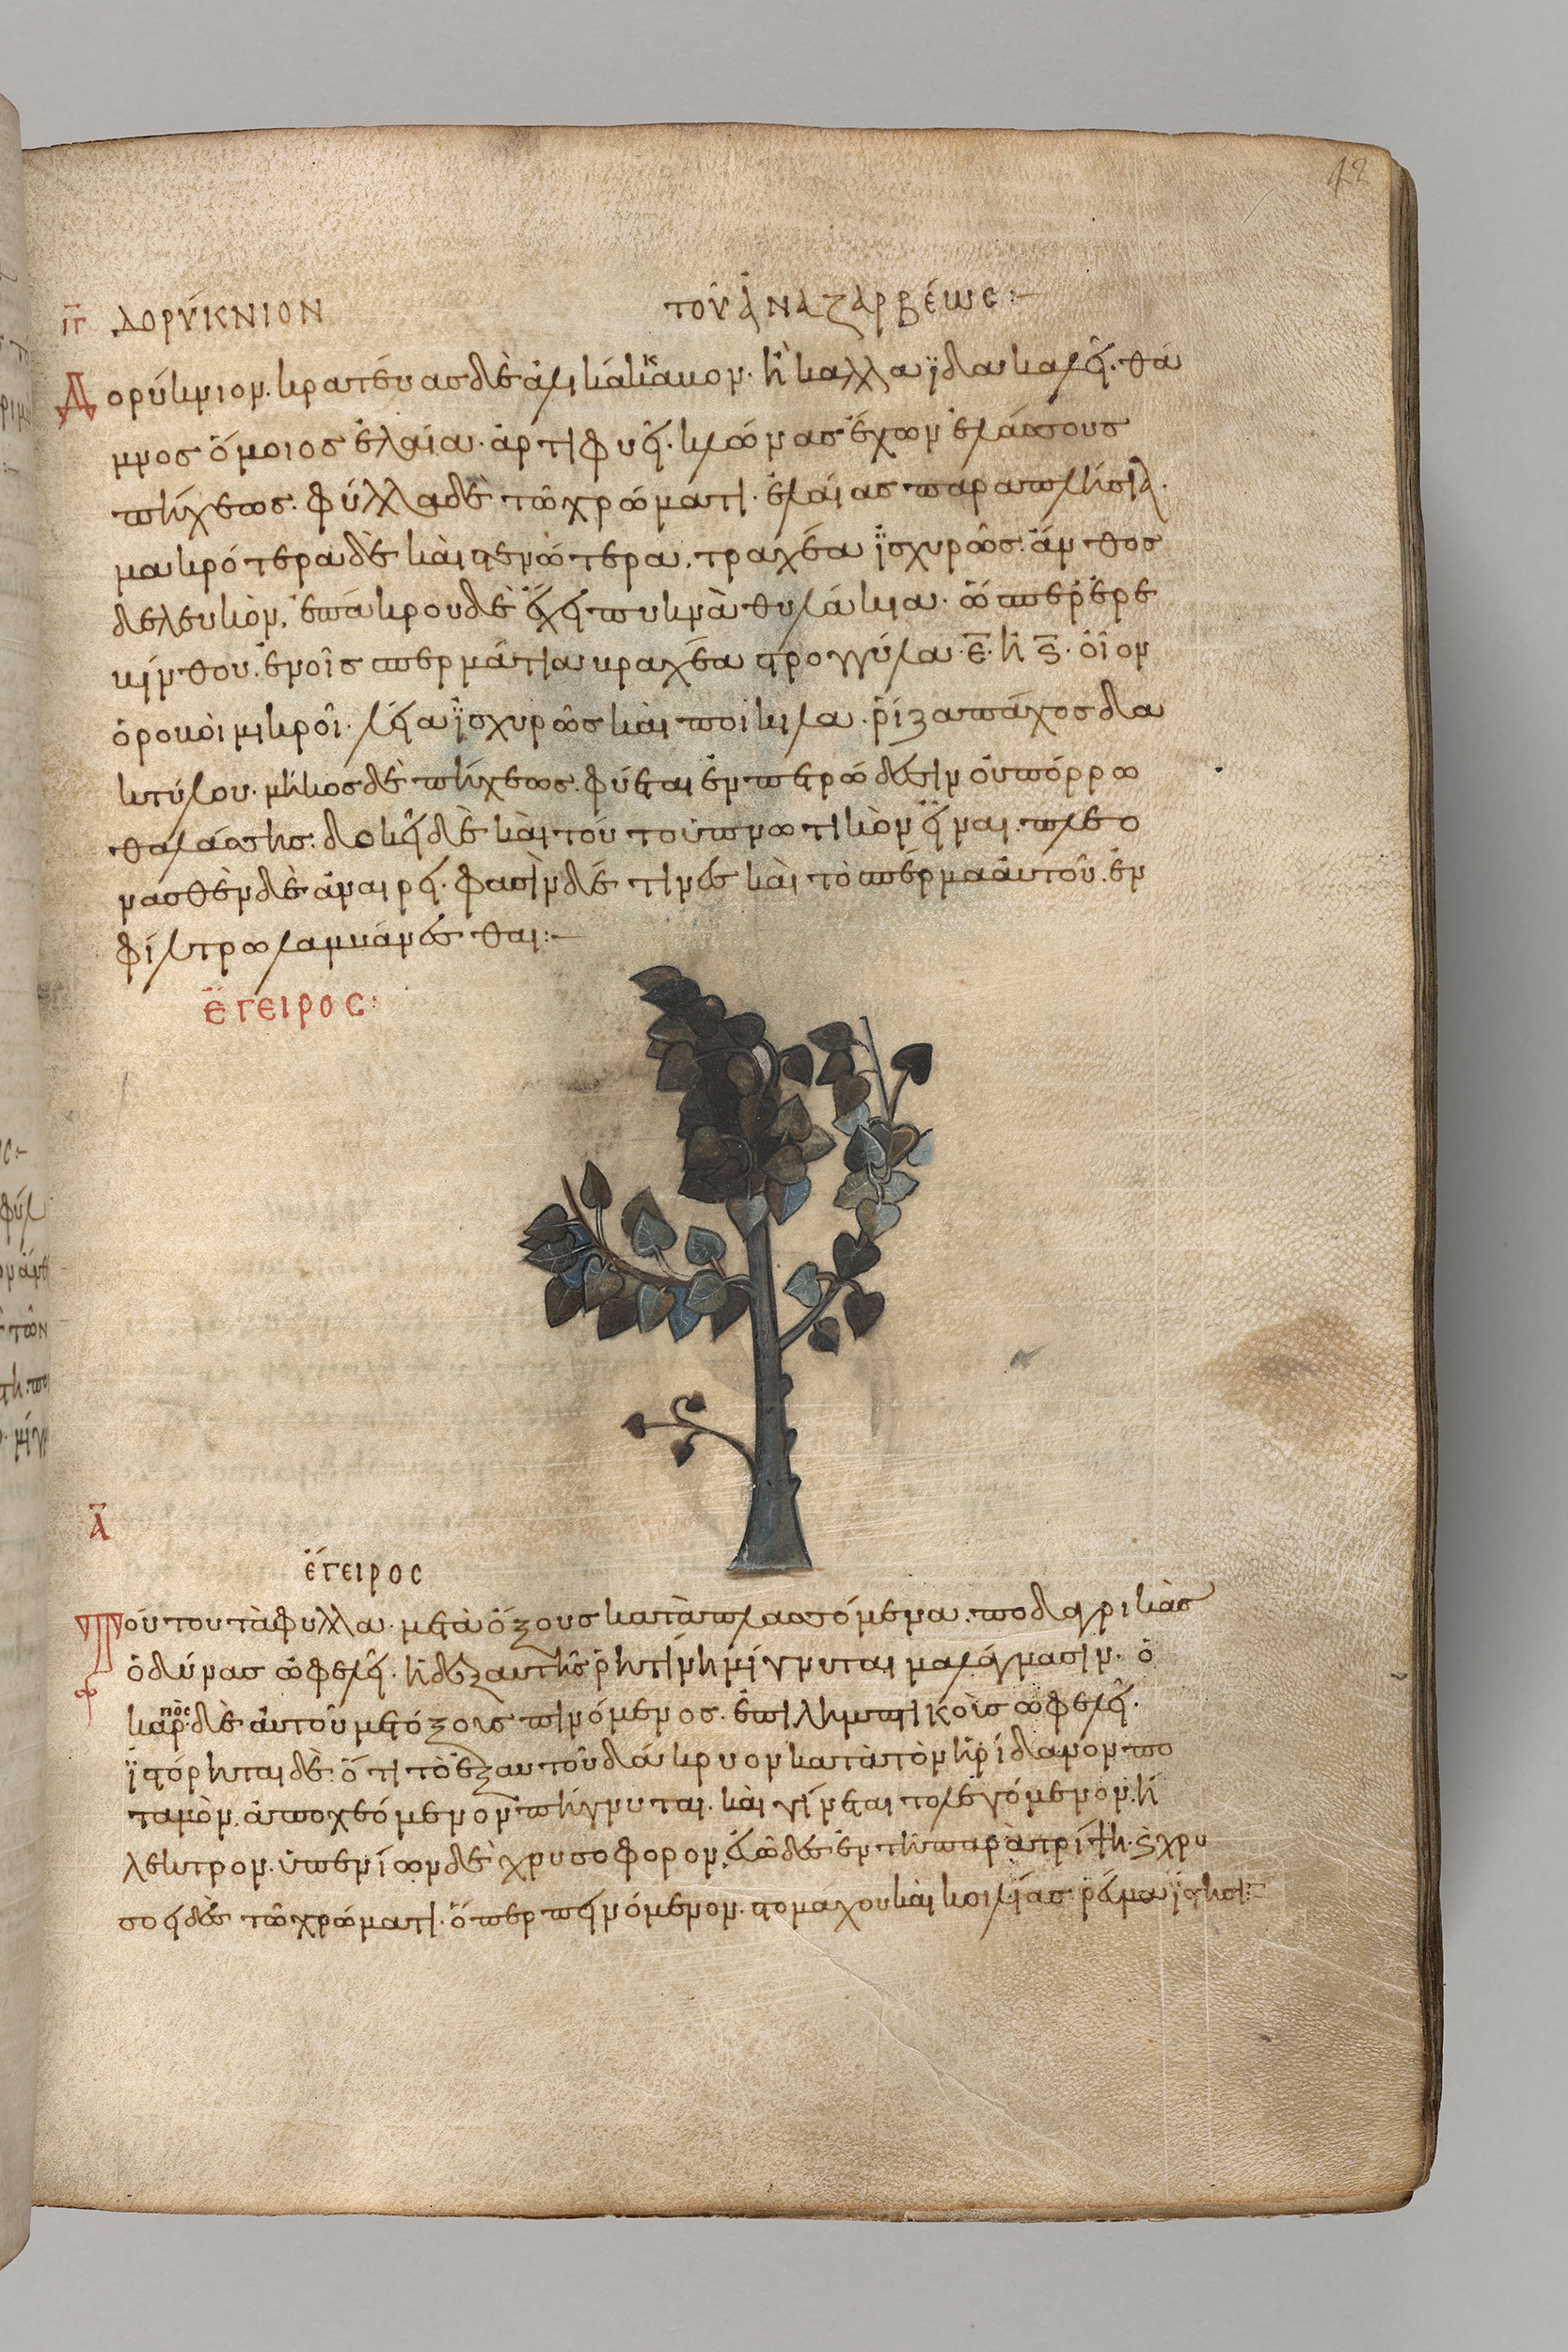 42
ιγ ΔΟΡΎΚΝΙΟΝ ΤΟΥ͂ ἈΝΑΖΑΡΒΈΩΣ:—
Δορύκνιον. κρατεύας δὲ ἁλικάκκαβον. ἢ καλλαϊδα καλεῖ. θά
μνος ὅμοιος ἐλαία. ἀρτιφυεῖ. κλώνας ἔχων ἐλάσσους
πήχεως. φύλλα δὲ τῶ χρώματι. ἐλαίας παραπλήσια.
μακρότερα δὲ καὶ στενώτερα, τραχέα ϊσχυρῶς. ἄνθος
δὲ λευκόν. ἐπάκρου δὲ ἔχει πυκνὰ θυλάκια. ὥσπερ ἐρε
κίνθου. ἐν οἷς σπερμάτια τραχέα στρογγύλα ε̄. ἢ ς̄. οἷον
ὄροβοι μικροί. λεῖα ϊσχυρῶς καὶ ποικίλα. ῥίζα πάχος δα
κτύλου. μῆκος δὲ πήχεως. φύεται ἐν πετρώδεσιν οὐ πόρρω
θαλάσσης. δοκεῖ δὲ καὶ τοῦτο ὑπνωτικὸν εἶναι. πλεο
νασθὲν δὲ ἀναιρεῖ. φασὶν δέ τινες καὶ τὸ σπέρμα αὐτοῦ. ἐν
φίλτρω λαμβάνεσθαι:—
ἜΓΕΙΡΟΣ:
Α
ἔγειρος
Τούτου τὰ φύλλα. μετὰ ὄξους καταπλασσόμενα. ποδαγρικὰς
ὀδύνας ὠφελεῖ. ἡ δὲ ἐξ αυτῆς ῥητίνη μίγνυται μαλάγμασιν. ὁ
καρπὸς δὲ αὐτοῦ μετ ὄξους πινόμενος. ἐπιλημπτικοῖς ὠφελεῖ.
ϊστόρηται δὲ. ὅτι τὸ ἐξ αυτοῦ δάκρυον κατὰ τὸν ἠριδανὸν πο
ταμὸν. ἀποχεόμενον πήγνυται. καὶ γίνεται το λεγόμενον. ἤ
λεκτρον. ὑπ ενίων δὲ χρυσοφορον, εὐῶδες ἐν τῆ παρατρίψη. ϗ χρυ
σοειδὲς τῶ χρώματι. ὅπερ πεινόμενον. στομάχου καὶ κοιλίας ῥεύμα ϊστησι: